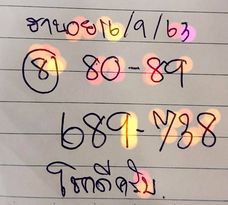 ฮานอย 16/9/63
(8) 80-89
689-788
โชคดีครับ.